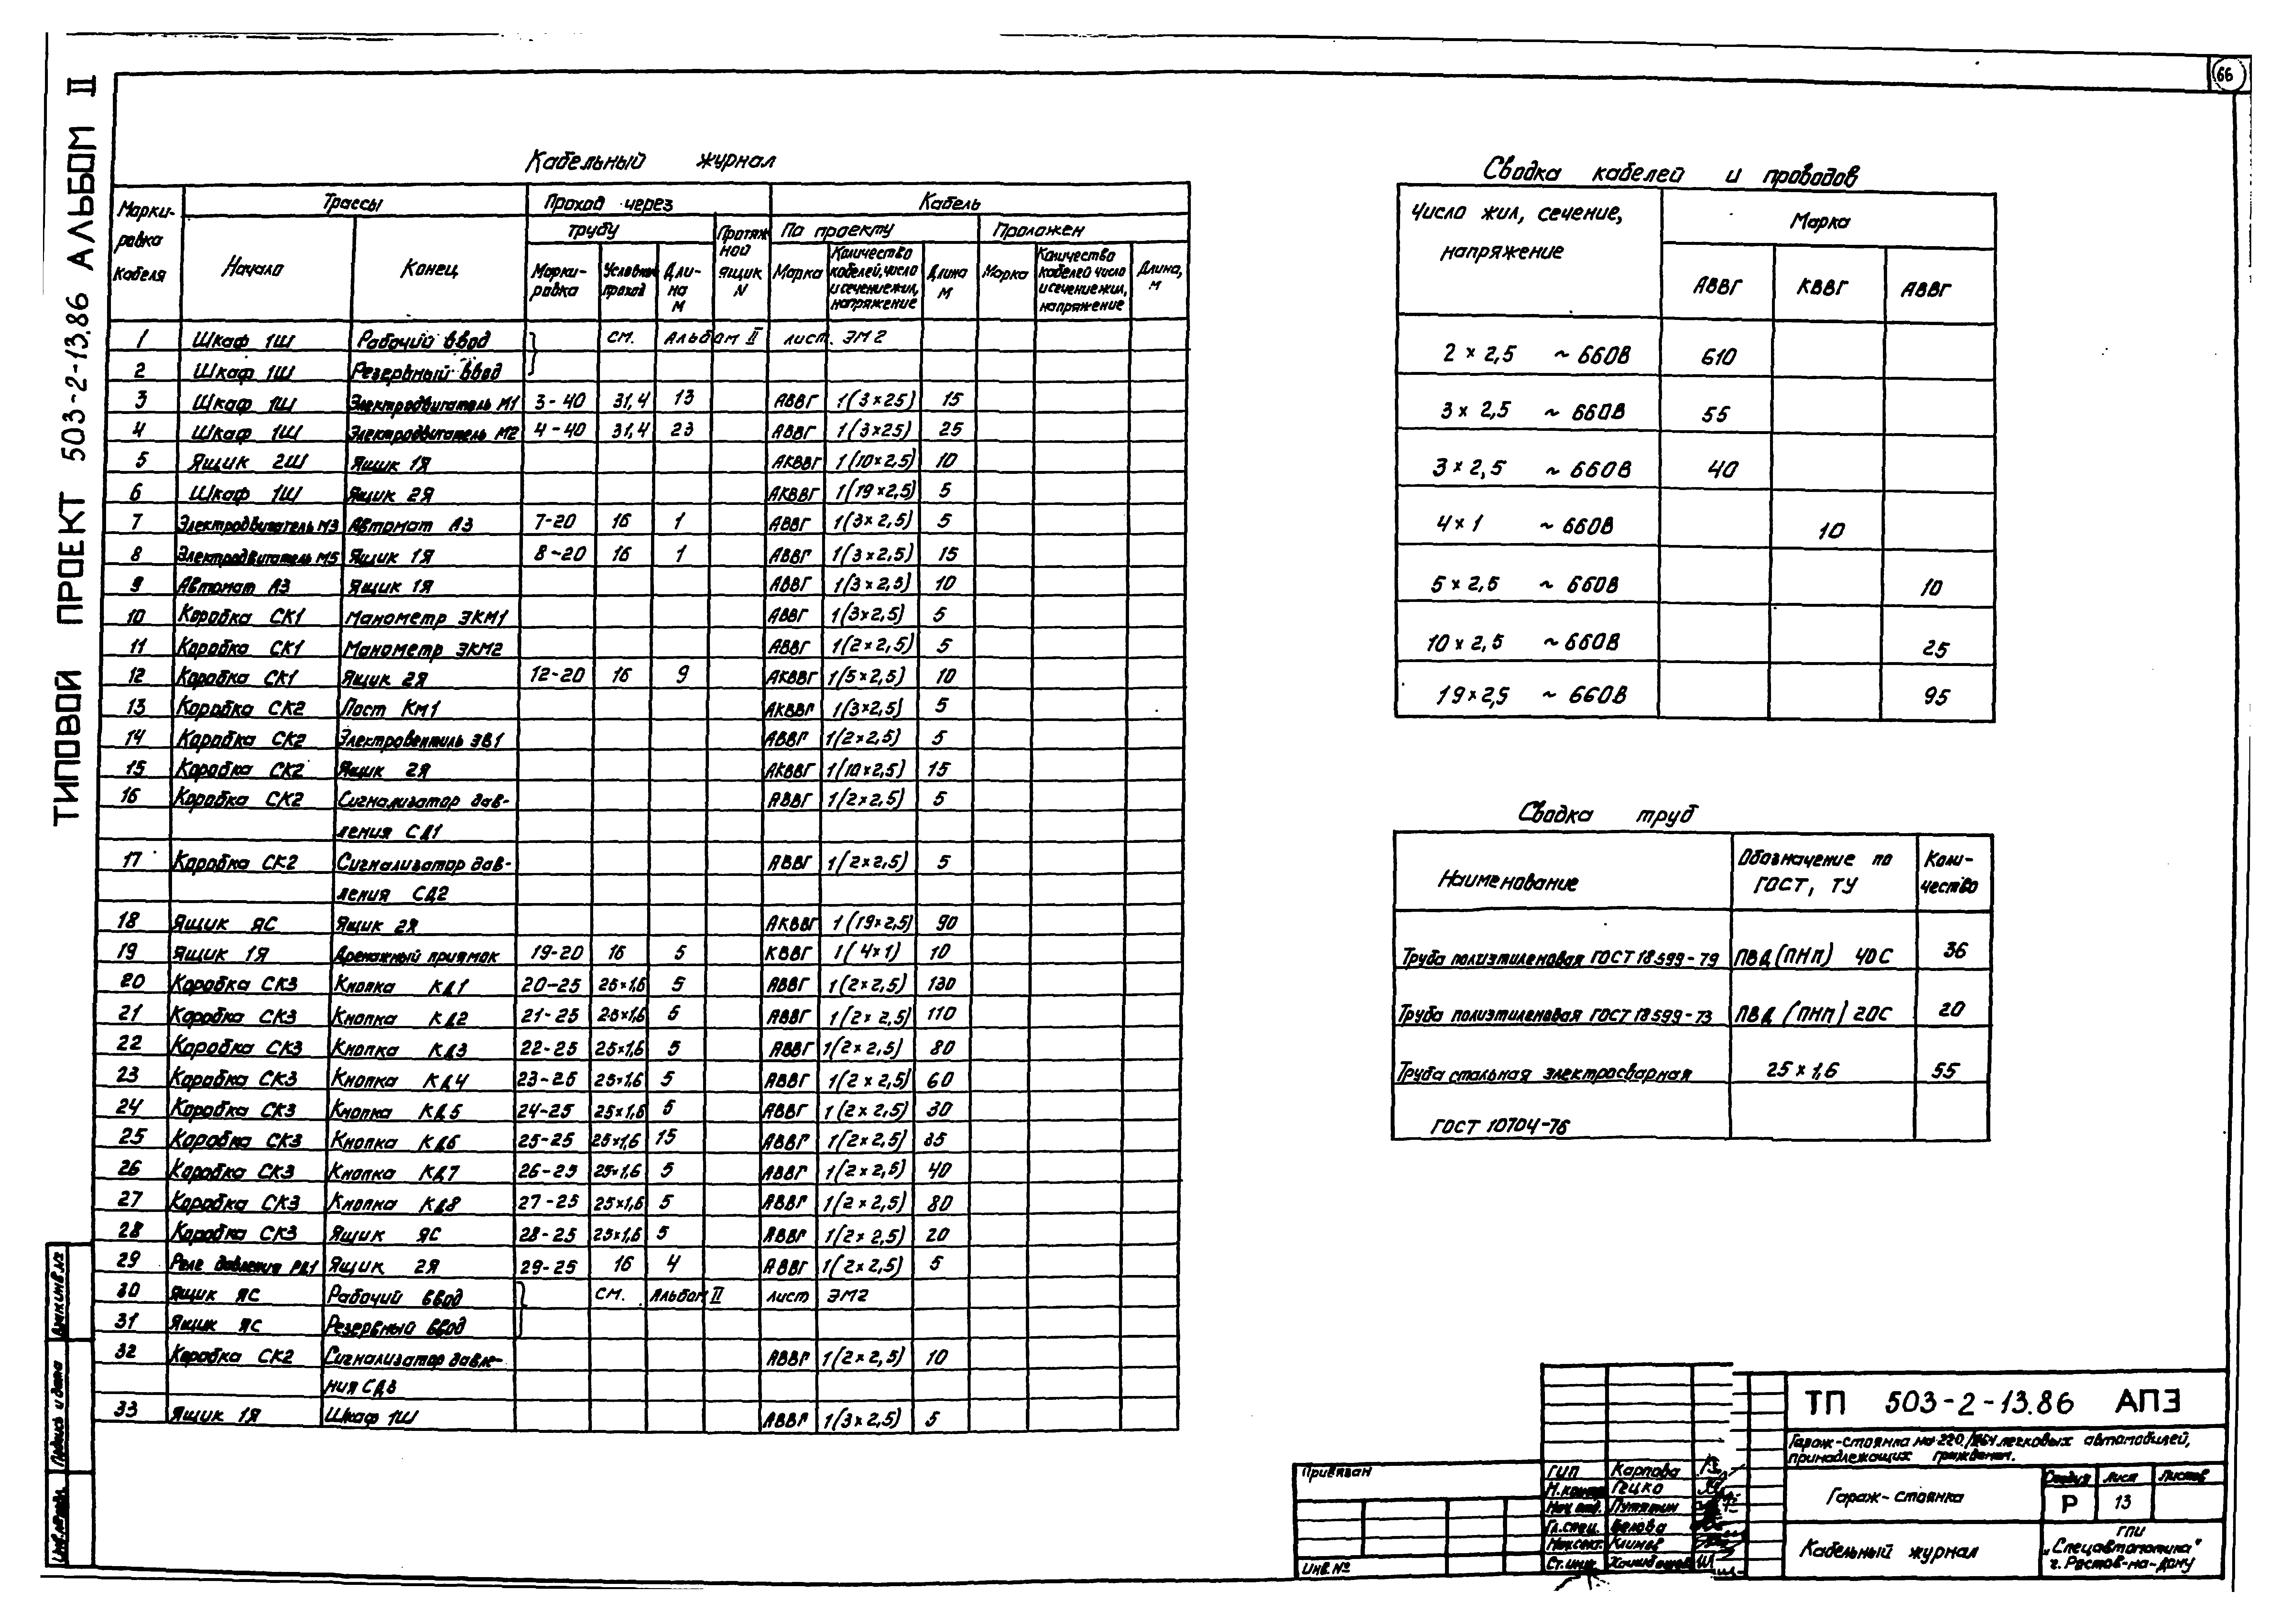 66
ТИПОВОЙ ПРОЕКТ 503-2-13.86 АЛЬБОМ II
Кабельный журнал
Марки-ровка кабеля | Трассы | Проход через | Кабель
трубу | Протяж ной ящик N | По проекту | Проложен
Начало | Конец | Марки-ровка | Условный проход | Дли-на М | Марка | Количество кабелей, число и сечение жил, напряжение | Длина М | Марка | Количество кабелей число и сечение жил, напряжение | Длина, М
1 Шкаф 1Ш Рабочий ввод см. Альбом II лист. ЭМ2
2 Шкаф 1Ш Резервный ввод
3 Шкаф 1Ш Электродвигатель М1 3-40 31,4 13 АВВГ 1(3×25) 15
4 Шкаф 1Ш Электродвигатель М2 4-40 31,4 23 АВВГ 1(3×25) 25
5 Ящик 2Ш Ящик 1Я АКВВГ 1(10×2,5) 10
6 Шкаф 1Ш Ящик 2Я АКВВГ 1(19×2,5) 5
7 Электродвигатель М3 Автомат А3 7-20 16 1 АВВГ 1(3×2,5) 5
8 Электродвигатель М5 Ящик 1Я 8-20 16 1 АВВГ 1(3×2,5) 15
9 Автомат А3 Ящик 1Я АВВГ 1(3×2,5) 10
10 Коробка СК1 Манометр ЭКМ1 АВВГ 1(3×2,5) 5
11 Коробка СК1 Манометр ЭКМ2 АВВГ 1(2×2,5) 5
12 Коробка СК1 Ящик 2Я 12-20 16 9 АКВВГ 1(5×2,5) 10
13 Коробка СК2 Пост КМ1 АКВВГ 1(3×2,5) 5
14 Коробка СК2 Электровентиль ЭВ1 АВВГ 1(2×2,5) 5
15 Коробка СК2 Ящик 2Я АКВВГ 1(10×2,5) 15
16 Коробка СК2 Сигнализатор дав- АВВГ 1(2×2,5) 5
ления СД1
17 Коробка СК2 Сигнализатор дав- АВВГ 1(2×2,5) 5
ления СД2
18 Ящик ЯС Ящик 2Я АКВВГ 1(19×2,5) 90
19 Ящик 1Я Дренажный приямок 19-20 16 5 КВВГ 1(4×1) 10
20 Коробка СК3 Кнопка КД1 20-25 25×1,6 5 АВВГ 1(2×2,5) 130
21 Коробка СК3 Кнопка КД2 21-25 25×1,6 5 АВВГ 1(2×2,5) 110
22 Коробка СК3 Кнопка КД3 22-25 25×1,6 5 АВВГ 1(2×2,5) 80
23 Коробка СК3 Кнопка КД4 23-25 25×1,6 5 АВВГ 1(2×2,5) 60
24 Коробка СК3 Кнопка КД5 24-25 25×1,6 5 АВВГ 1(2×2,5) 30
25 Коробка СК3 Кнопка КД6 25-25 25×1,6 15 АВВГ 1(2×2,5) 35
26 Коробка СК3 Кнопка КД7 26-25 25×1,6 5 АВВГ 1(2×2,5) 40
27 Коробка СК3 Кнопка КД8 27-25 25×1,6 5 АВВГ 1(2×2,5) 80
28 Коробка СК3 Ящик ЯС 28-25 25×1,6 5 АВВГ 1(2×2,5) 20
29 Реле давления РД1 Ящик 2Я 29-25 16 4 АВВГ 1(2×2,5) 5
30 Ящик ЯС Рабочий ввод см. Альбом II лист ЭМ2
31 Ящик ЯС Резервный ввод
32 Коробка СК2 Сигнализатор давле- АВВГ 1(2×2,5) 10
ния СД3
33 Ящик 1Я Шкаф 1Ш АВВГ 1(3×2,5) 5
Сводка кабелей и проводов
Число жил, сечение, напряжение | Марка
АВВГ | КВВГ | АВВГ
2×2,5 ~660В 610
3×2,5 ~660В 55
3×2,5 ~660В 40
4×1 ~660В 10
5×2,5 ~660В 10
10×2,5 ~660В 25
19×2,5 ~660В 95
Сводка труб
Наименование | Обозначение по ГОСТ, ТУ | Коли-чество
Труба полиэтиленовая ГОСТ 18599-79 ПВД (ПНП) 40С 36
Труба полиэтиленовая ГОСТ 18599-73 ПВД (ПНП) 20С 20
Труба стальная электросварная 25×1,6 55
ГОСТ 10704-76
Взам.инв.№
Подпись и дата
Инв.№подл.
Привязан
Инв.№
ГИП Карпова
Н.контр. Гецко
Нач.отд. Путятин
Гл.спец. Белова
Климов
Ст.инж.
ТП 503-2-13.86 АПЭ
Гараж-стоянка на 220 легковых автомобилей,
принадлежащих гражданам.
Гараж-стоянка
Стадия Лист Листов
Р 13
Кабельный журнал
ГПИ
„Спецавтоматика"
г. Ростов-на-Дону